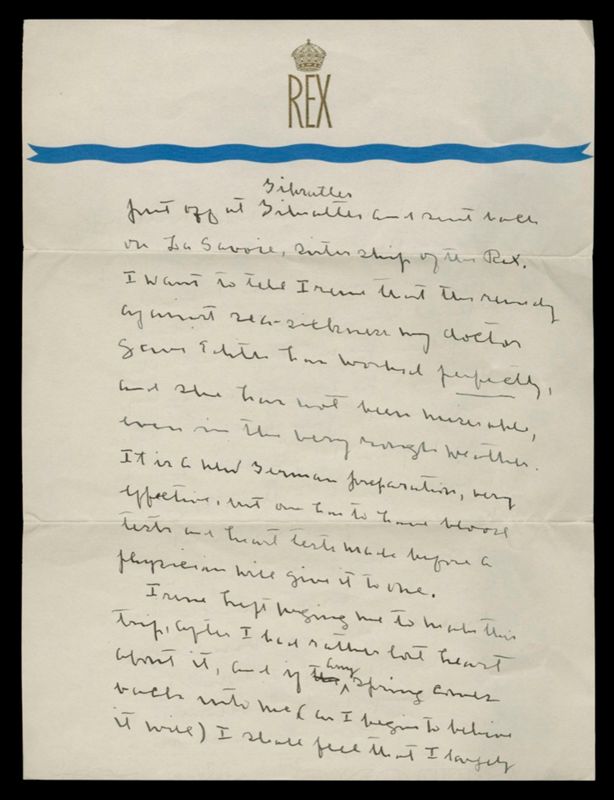 REX
Gibralter
put off at Gibralter and sent back
on La Savoie, sister ship of the Rex.
I want to tell Irene that the remedy
against sea-sickness my doctor
gave Edith has worked perfectly,
and she has not been miserable,
even in the very rough weather.
It is a new German preparation, very
effective, but one has to have blood
tests and heart tests made before a
physician will give it to one.
Irene kept urging me to make this
trip, after I had rather lost heart
about it, and if any spring comes
back into me (as I begin to believe
it will) I shall feel that I largely